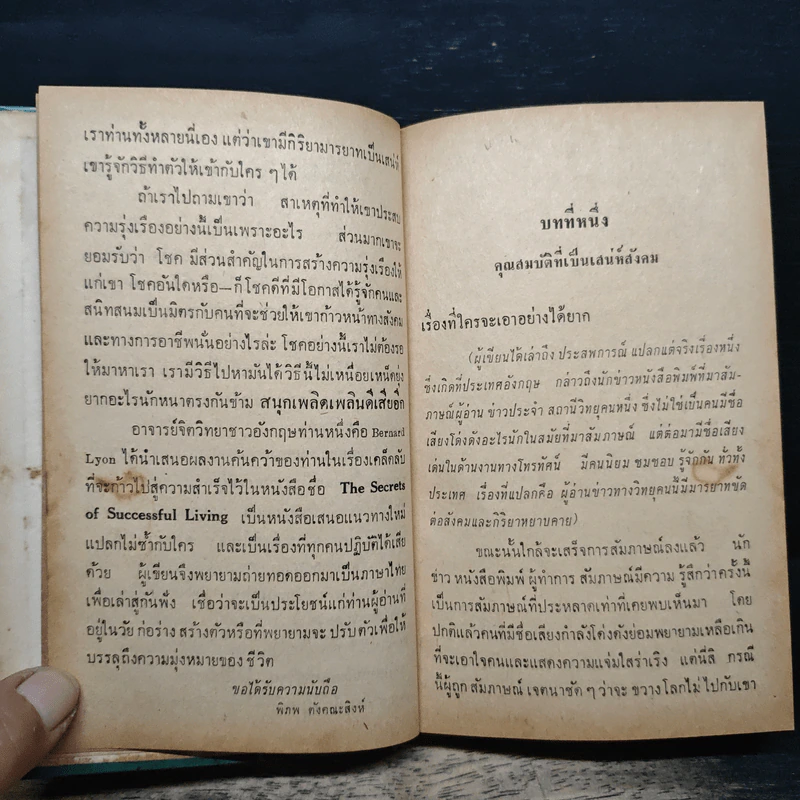 เราท่านทั้งหลายนี่เอง แต่ว่าเขามีกิริยามารยาทเป็นเสน่ห์
เขารู้จักวิธีทำตัวให้เข้ากับใคร ๆ ได้
ถ้าเราไปถามเขาว่า สาเหตุที่ทำให้เขาประสบ
ความรุ่งเรืองอย่างนี้เป็นเพราะอะไร ส่วนมากเขาจะ
ยอมรับว่า โชค มีส่วนสำคัญในการสร้างความรุ่งเรืองให้
แก่เขา โชคอันใดหรือ—ก็โชคดีที่มีโอกาสได้รู้จักคนและ
สนิทสนมเป็นมิตรกับคนที่จะช่วยให้เขาก้าวหน้าทางสังคม
และทางการอาชีพนั่นอย่างไรล่ะ โชคอย่างนี้เราไม่ต้องรอ
ให้มาหาเรา เรามีวิธีไปหามันได้ วิธีนี้ไม่เหนื่อยเหน็ดยุ่ง
ยากอะไรนักหนาตรงกันข้าม สนุกเพลิดเพลินดีเสียอีก
อาจารย์จิตวิทยาชาวอังกฤษท่านหนึ่งคือ Bernard
Lyon ได้นำเสนอผลงานค้นคว้าของท่านในเรื่องเคล็ดลับ
ที่จะก้าวไปสู่ความสำเร็จไว้ในหนังสือชื่อ The Secrets
of Successful Living เป็นหนังสือเสนอแนวทางใหม่
แปลกไม่ซ้ำกับใคร และเป็นเรื่องที่ทุกคนปฏิบัติได้เสีย
ด้วย ผู้เขียนจึงพยายามถ่ายทอดออกมาเป็นภาษาไทย
เพื่อเล่าสู่กันฟัง เชื่อว่าจะเป็นประโยชน์แก่ท่านผู้อ่านที่
อยู่ในวัย ก่อร่าง สร้างตัวหรือที่พยายามจะ ปรับ ตัวเพื่อให้
บรรลุถึงความมุ่งหมายของ ชีวิต
ขอได้รับความนับถือ
พิภพ ตังคณะสิงห์
บทที่หนึ่ง
คุณสมบัติที่เป็นเสน่ห์สังคม
เรื่องที่ใครจะเอาอย่างได้ยาก
(ผู้เขียนได้เล่าถึง ประสพการณ์ แปลกแต่จริงเรื่องหนึ่ง
ซึ่งเกิดที่ประเทศอังกฤษ กล่าวถึงนักข่าวหนังสือพิมพ์ที่มาสัม-
ภาษณ์ผู้อ่าน ข่าวประจำ สถานีวิทยุคนหนึ่ง ซึ่งไม่ใช่เป็นคนมีชื่อ
เสียงโด่งดังอะไรนักในสมัยที่มาสัมภาษณ์ แต่ต่อมามีชื่อเสียง
เด่นในด้านงานทางโทรทัศน์ มีคนนิยม ชมชอบ รู้จักกัน ทั่วทั้ง
ประเทศ เรื่องที่แปลกคือ ผู้อ่านข่าวทางวิทยุคนนี้มีมารยาทขัด
ต่อสังคมและกิริยาหยาบคาย)
ขณะนั้นใกล้จะเสร็จการสัมภาษณ์ลงแล้ว นัก
ข่าว หนังสือพิมพ์ ผู้ทำการ สัมภาษณ์มีความ รู้สึกว่าครั้งนี้
เป็นการสัมภาษณ์ที่ประหลาดเท่าที่เคยพบเห็นมา โดย
ปกติแล้วคนที่มีชื่อเสียงกำลังโด่งดังย่อมพยายามเหลือเกิน
ที่จะเอาใจคนและแสดงความแจ่มใสร่าเริง แต่นี่สิ กรณี
นี้ผู้ถูก สัมภาษณ์ เจตนาชัด ๆ ว่าจะ ขวาง โลกไม่ ไปกับเขา